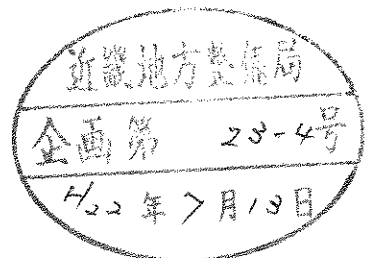 近畿地方整備局
企画第 23-4号
H22年7月13日